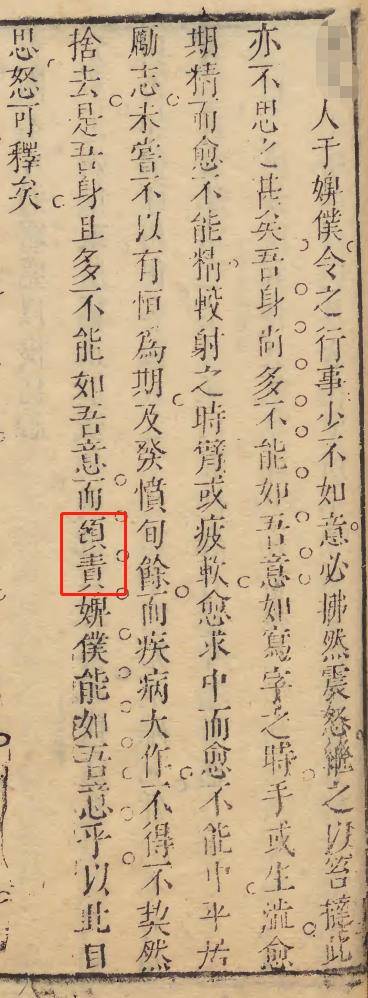 人于婢僕令之行事少不如意必拂然震怒繼之以笞撻此
亦不思之甚矣吾身尚多不能如吾意如寫字之時手或生澁愈
期精而愈不能精較射之時臂或疲軟愈求中而愈不能中平居
勵志未嘗不以有恒爲期及發憤旬餘而疾病大作不得不契然
捨去是吾身且多不能如吾意而責婢僕能如吾意乎以此自
思怒可釋矣